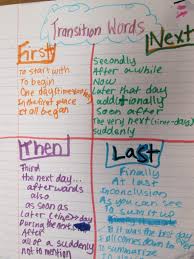 Transition Words
First
To start with
To begin
One day (time-day)
In the first place
It all began
Next
Secondly
After a while
Now
Later that day
additionally
Soon after
The very next (time-days)
suddenly
Then
Third
the next day...
afterwards
also
as soon as
later (time->day)
During the
After
all of a suddenly
not to mention
Last
Finally
At last
In conclusion
As you can see
To sum it up
was the best day
It all comes down to
To summarize